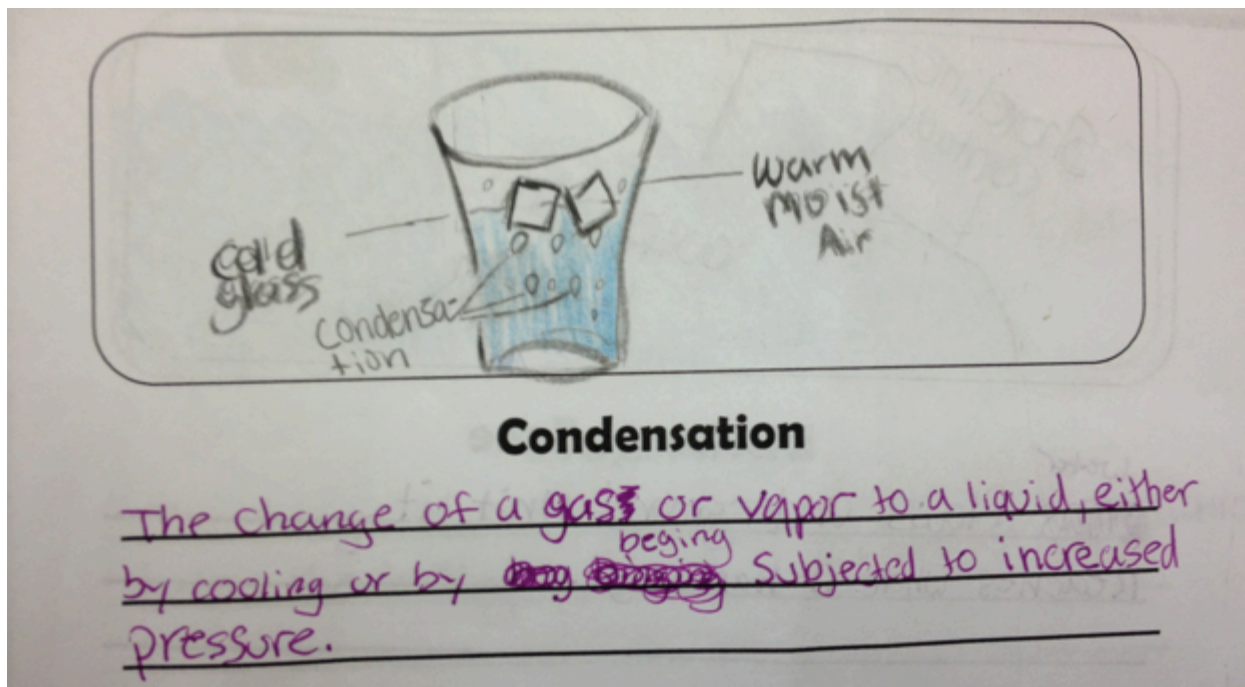 warm
moist
Air
cold
glass
condensa-
tion
Condensation
The change of a gas or vapor to a liquid, either
by cooling or by beging subjected to increased
pressure.